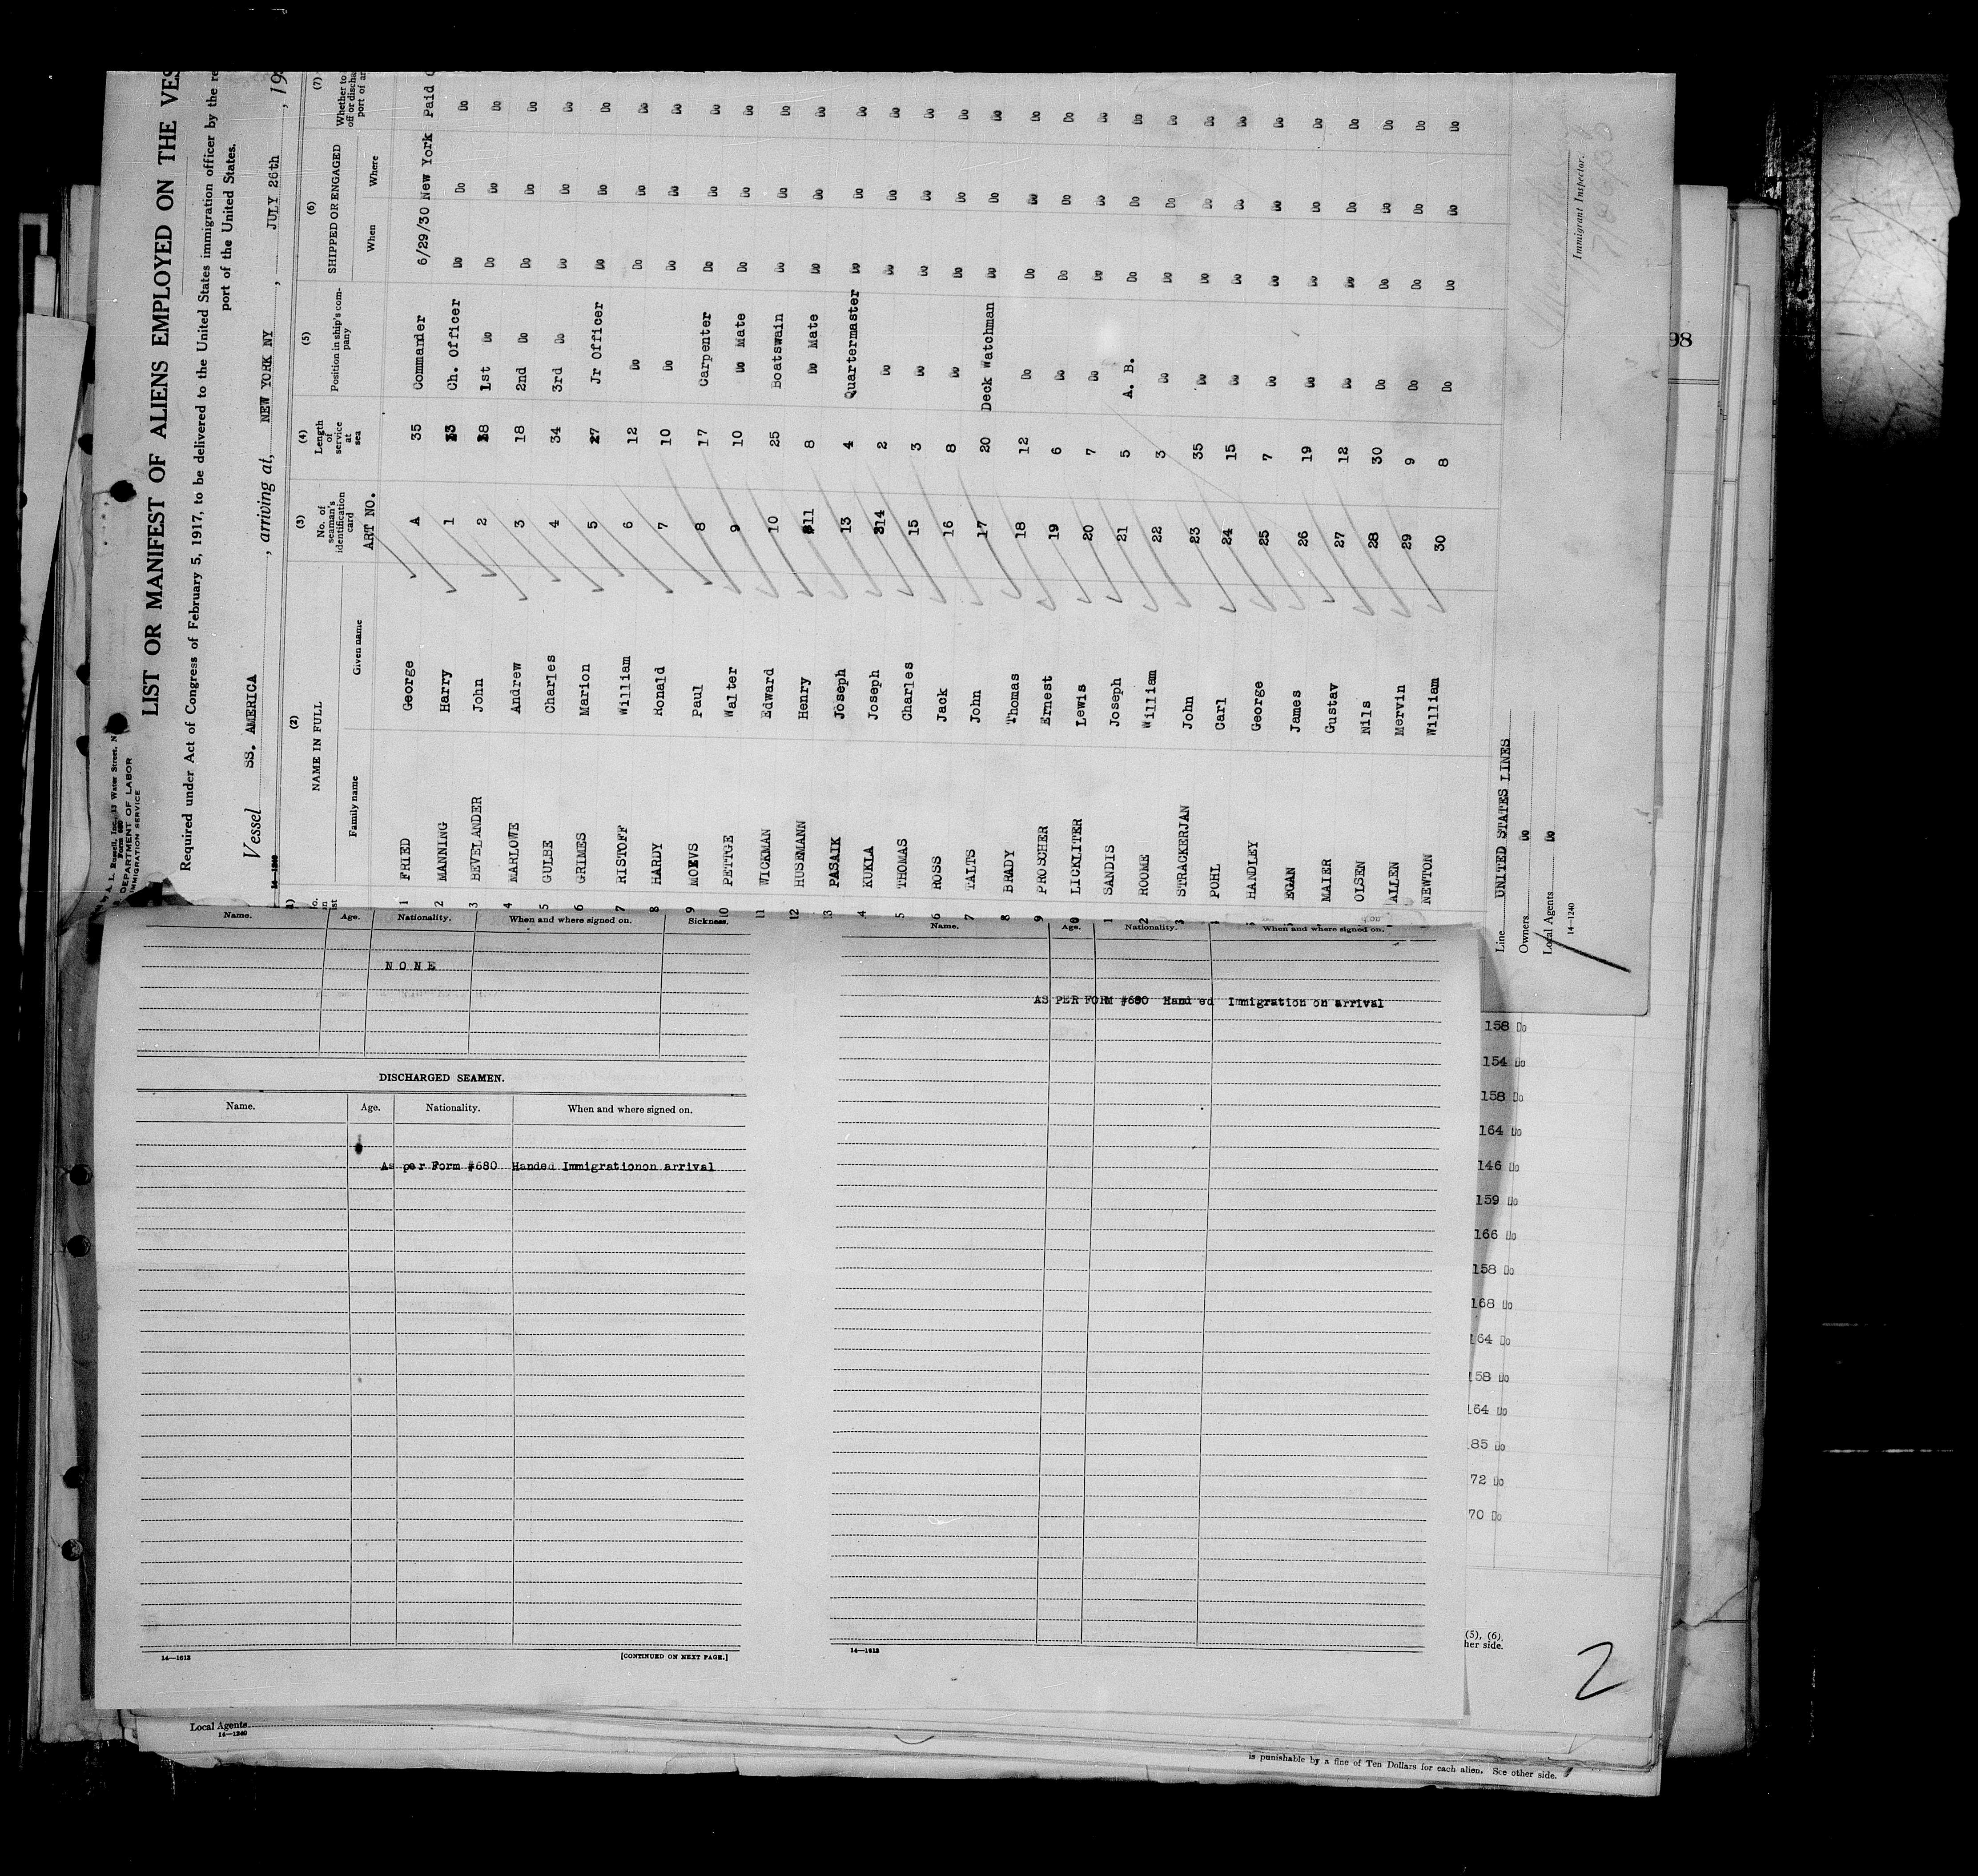 LIST OR MANIFEST OF ALIENS EMPLOYED ON THE
Required under Act of Congress of February 5, 1917, to be delivered to the United States immigration officer by the
port of the United States.
DEPARTMENT OF LABOR
IMMIGRATION SERVICE
Vessel SS. AMERICA , arriving at, NEW YORK NY , JULY 26th , 19
(2) (3) (4) (5) (6) (7)
NAME IN FULL No. of seaman's identification card Length of service at sea Position in ship's company SHIPPED OR ENGAGED
Family name Given name ART NO. When Where
1 FRIED George A 35 Commander 6/29/30 New York Paid
2 MANNING Harry 1 Ch. Officer Do Do Do
3 BEVELANDER John 2 1st Do Do Do Do
4 MARLOWE Andrew 3 18 2nd Do Do Do Do
5 GULBE Charles 4 34 3rd Do Do Do Do
6 GRIMES Marion 5 27 Jr Officer Do Do Do
7 RISTOFF William 6 12 Do Do Do Do
8 HARDY Ronald 7 10 Do Do Do Do
9 MOEVS Paul 8 17 Carpenter Do Do Do
10 PETTGE Walter 9 10 Do Mate Do Do Do
11 WICKMAN Edward 10 25 Boatswain Do Do Do
12 HUSEMANN Henry 11 8 Do Mate Do Do Do
13 PASAIK Joseph 13 4 Quartermaster Do Do Do
4 KUKLA Joseph 14 2 Do Do Do Do
5 THOMAS Charles 15 3 Do Do Do Do
6 ROSS Jack 16 8 Do Do Do Do
7 TALTS John 17 20 Deck Watchman Do Do Do
8 BRADY Thomas 18 12 Do Do Do Do
9 PROSCHER Ernest 19 6 Do Do Do Do
LICKLITER Lewis 20 7 Do Do Do Do
1 SANDIS Joseph 21 5 A. B. Do Do Do
2 ROOME William 22 3 Do Do Do Do
3 STRACKERJAN John 23 35 Do Do Do Do
POHL Carl 24 15 Do Do Do Do
HANDLEY George 25 7 Do Do Do Do
EGAN James 26 19 Do Do Do Do
MAIER Gustav 27 12 Do Do Do Do
OLSEN Nils 28 30 Do Do Do Do
ALLEN Mervin 29 9 Do Do Do Do
NEWTON William 30 8 Do Do Do Do
Line UNITED STATES LINES
Owners Do
Local Agents Do
14-1240
Immigrant Inspector.
98
Name. Age. Nationality. When and where signed on. Sickness.
NONE
DISCHARGED SEAMEN.
Name. Age. Nationality. When and where signed on.
As per Form #680 Handed Immigrationon arrival
14-1613
[CONTINUED ON NEXT PAGE.]
Name. Age. Nationality. When and where signed on.
AS PER FORM #680 Handed Immigration on arrival
14-1613
158 Do
154 Do
158 Do
164 Do
146 Do
159 Do
166 Do
158 Do
168 Do
164 Do
158 Do
164 Do
85 Do
72 Do
70 Do
(5), (6),
her side.
2
Local Agents
14-1240
is punishable by a fine of Ten Dollars for each alien. See other side.